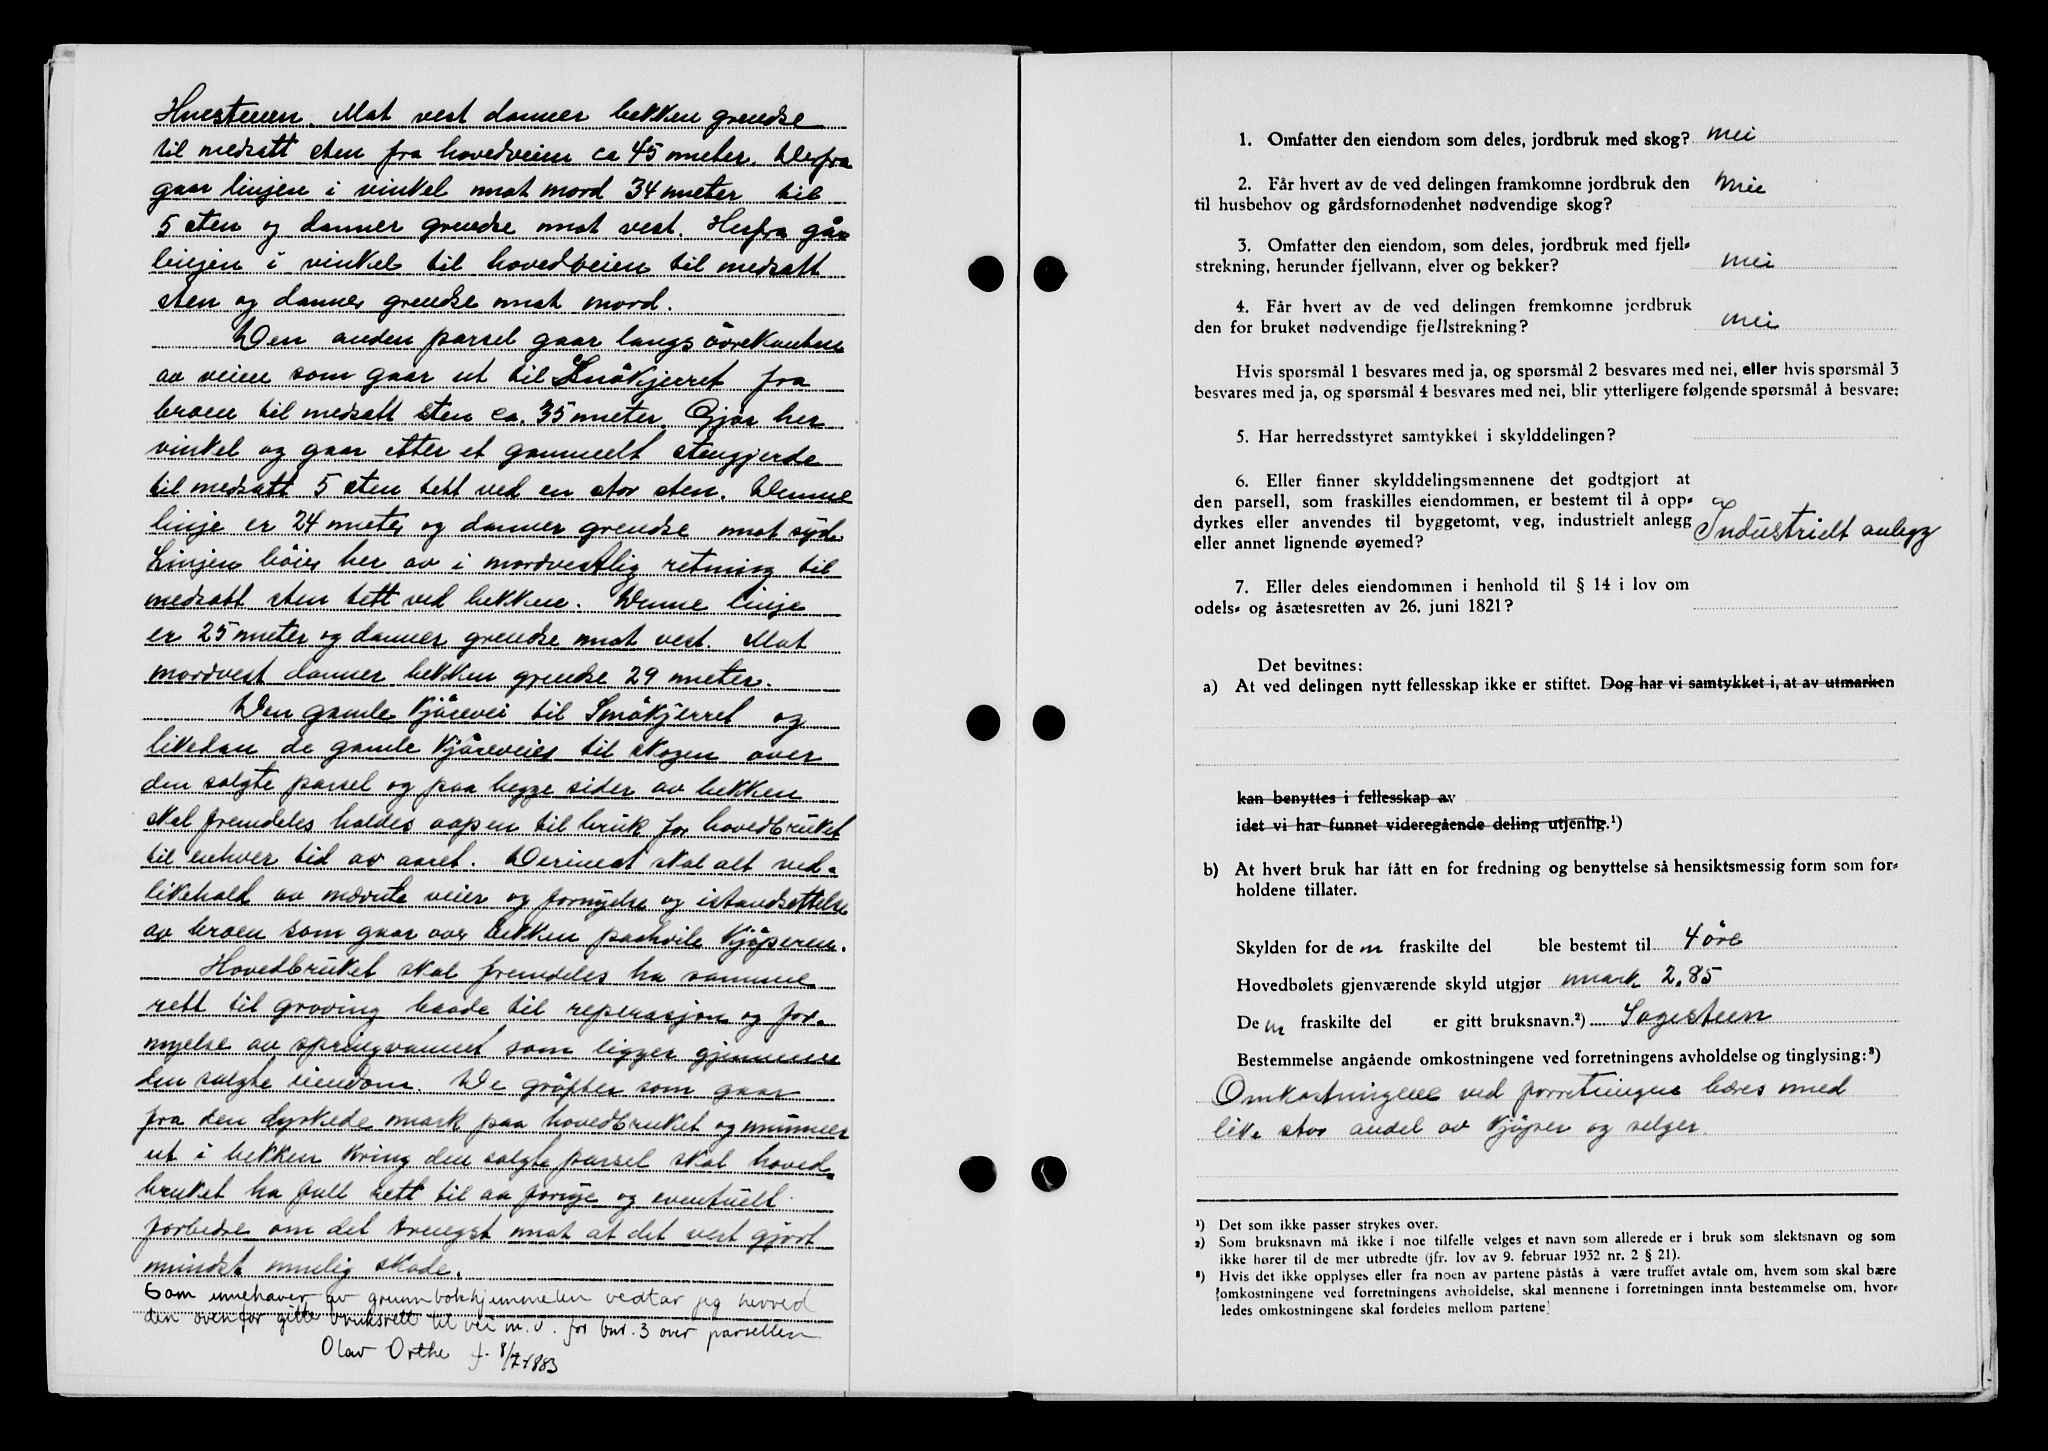 Huesteen. Mot vest danner bekken grendse
til nedsatt sten fra hovedveien ca 45 meter. Derfra
gaar linjen i vinkel mot nord 34 meter til
5 sten og danner grendse mot vest. Herfra går
linjen i vinkel til hovedveien til nedsatt
sten og danner grendse mot nord.
Den anden parsel gaar langs övrekanten
av veien som gaar ut til Småkjerret fra
broen til nedsatt sten ca. 35 meter. Gjør her
vinkel og gaar etter et gammelt stengjerde
til nedsatt 5 sten tett ved en stor sten. Denne
linje er 24 meter og danner grendse mot syd.
Linjen böier her av i nordvestlig retning til
nedsatt sten tett ved bekken. Denne linje
er 25 meter og danner grendse mot vest. Mot
nordvest danner bekken grendse 29 meter.
Den gamle kjørevei til Småkjerret og
likedan de gamle kjøreveier til skogen over
den solgte parsel og paa begge sider av bekken
skal fremdeles holdes aapen til bruk for hovedbruket
til enhver tid av aaret. Derimot skal alt ved-
likehold av nævnte veier og fornyelse og istandsettelse
av broen som gaar over bekken paahvile kjøperen.
Hovedbruket skal fremdeles ha samme
rett til graving baade til reperasjon og for-
nyelse av springvannet som ligger gjennem
den solgte eiendom. De grøfter som gaar
fra den dyrkede mark paa hovedbruket og munner
ut i bekken kring den solgte parsel skal hoved-
bruket ha full rett til aa fornye og eventuelt
forbedre om det trengst mot at det vert gjort
mindst mulig skade.
Som innehaver av grunnbokhjemmelen vedtar jeg herved
den ovenfor gitte bruksrett til vei m.v. for bnr. 3 over parsellen
Olav Orthe f. 8/7 1883
1. Omfatter den eiendom som deles, jordbruk med skog? nei
2. Får hvert av de ved delingen framkomne jordbruk den
til husbehov og gårdsfornødenhet nødvendige skog? nei
3. Omfatter den eiendom, som deles, jordbruk med fjell-
strekning, herunder fjellvann, elver og bekker? nei
4. Får hvert av de ved delingen fremkomne jordbruk
den for bruket nødvendige fjellstrekning? nei
Hvis spørsmål 1 besvares med ja, og spørsmål 2 besvares med nei, eller hvis spørsmål 3
besvares med ja, og spørsmål 4 besvares med nei, blir ytterligere følgende spørsmål å besvare:
5. Har herredsstyret samtykket i skylddelingen?
6. Eller finner skylddelingsmennene det godtgjort at
den parsell, som fraskilles eiendommen, er bestemt til å opp-
dyrkes eller anvendes til byggetomt, veg, industrielt anlegg
eller annet lignende øyemed? Industrielt anlegg
7. Eller deles eiendommen i henhold til § 14 i lov om
odels- og åsætesretten av 26. juni 1821?
Det bevitnes:
a) At ved delingen nytt fellesskap ikke er stiftet. Dog har vi samtykket i, at av utmarken
kan benyttes i fellesskap av
idet vi har funnet videregående deling utjenlig.¹)
b) At hvert bruk har fått en for fredning og benyttelse så hensiktsmessig form som for-
holdene tillater.
Skylden for de n fraskilte del ble bestemt til 4 öre
Hovedbølets gjenværende skyld utgjør mark 2.85
De n fraskilte del er gitt bruksnavn.²) Sagesteen
Bestemmelse angående omkostningene ved forretningens avholdelse og tinglysing:³)
Omkostningene ved forretningen bæres med
like stor andel av kjøper og selger.
¹) Det som ikke passer strykes over.
²) Som bruksnavn må ikke i noe tilfelle velges et navn som allerede er i bruk som slektsnavn og som
ikke hører til de mer utbredte (jfr. lov av 9. februar 1932 nr. 2 § 21).
³) Hvis det ikke opplyses eller fra noen av partene påstås å være truffet avtale om, hvem som skal bære
omkostningene ved forretningens avholdelse, skal mennene i forretningen innta bestemmelse om, hvor-
ledes omkostningene skal fordeles mellom partene.